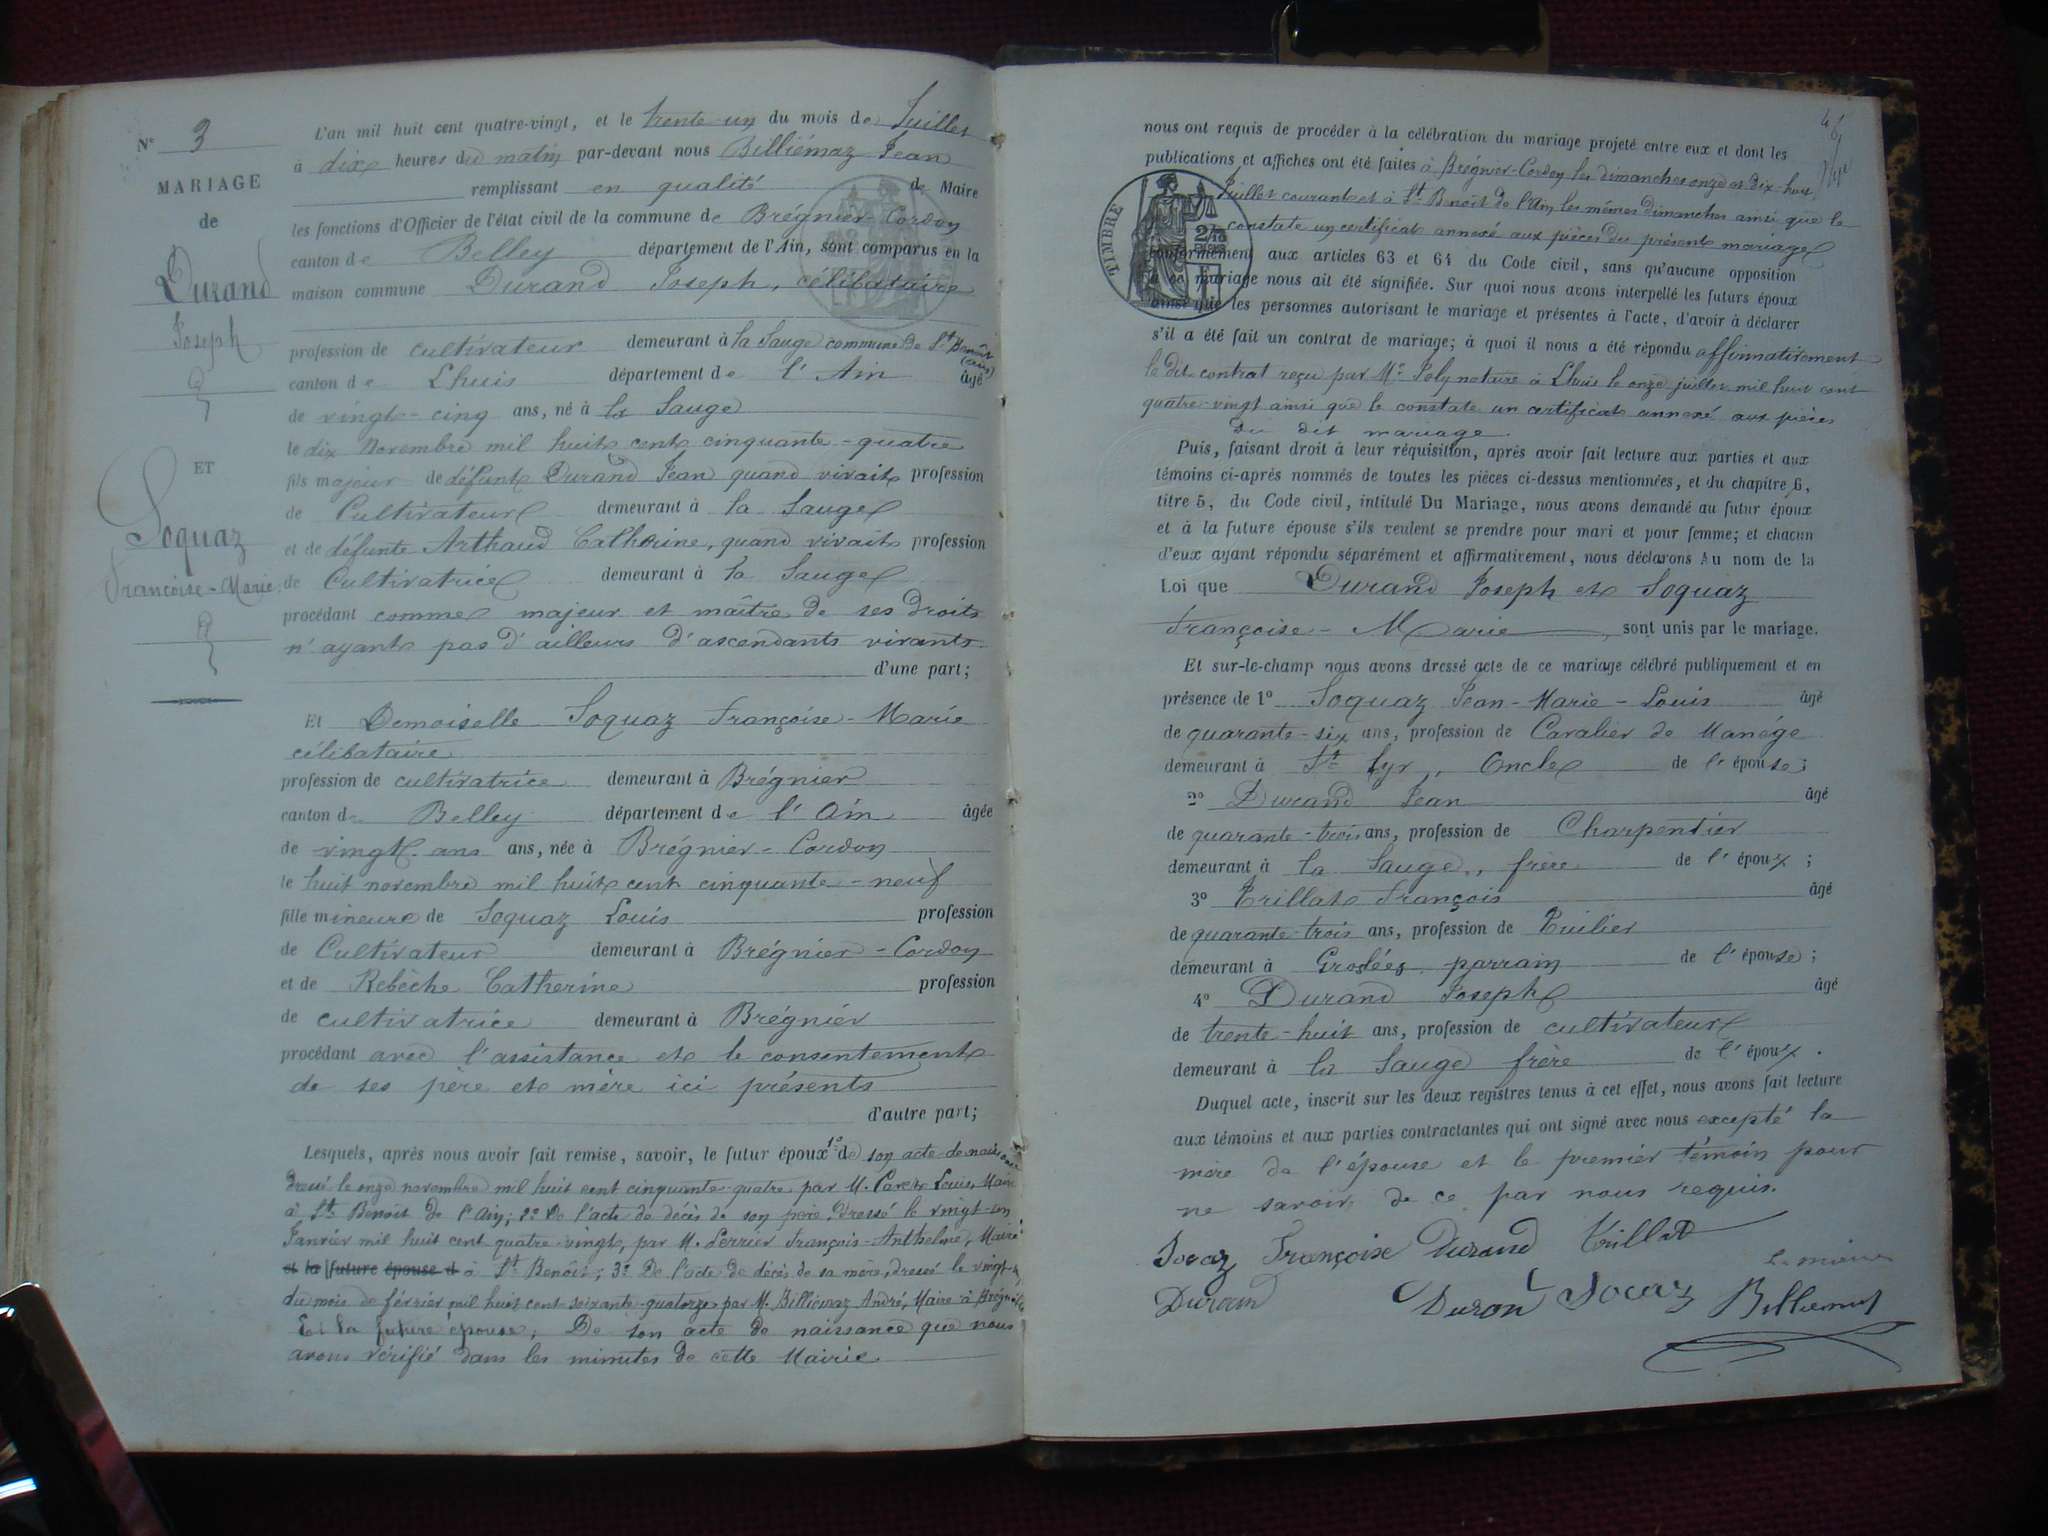 N° 3
MARIAGE
de
Durand
Joseph
ET
Soquaz
Françoise-Marie
L'an mil huit cent quatre-vingt, et le trente-un du mois de Juillet
à dix heures du matin par-devant nous Billiémaz Jean
remplissant en qualité de Maire
les fonctions d'Officier de l'état civil de la commune de Brégnier-Cordon
canton de Belley département de l'Ain, sont comparus en la
maison commune Durand Joseph, célibataire
profession de cultivateur demeurant à la Sauge commune de St Benoît
(ain)
canton de Lhuis département de l'Ain âgé
de vingt-cinq ans, né à la Sauge
le dix Novembre mil huit cent cinquante-quatre
fils majeur de défunt Durand Jean quand vivait profession
de Cultivateur demeurant à la Sauge
et de défunte Arthaud Catherine, quand vivait profession
de Cultivatrice demeurant à la Sauge
procédant comme majeur et maître de ses droits
n'ayant pas d'ailleurs d'ascendants vivants
d'une part;
Et Demoiselle Soquaz Françoise-Marie
célibataire
profession de cultivatrice demeurant à Brégnier
canton de Belley département de l'Ain âgée
de vingt ans ans, née à Brégnier-Cordon
le huit novembre mil huit cent cinquante-neuf
fille mineure de Soquaz Louis profession
de Cultivateur demeurant à Brégnier-Cordon
et de Rebèche Catherine profession
de cultivatrice demeurant à Brégnier
procédant avec l'assistance et le consentement
de ses père et mère ici présents
d'autre part;
Lesquels, après nous avoir fait remise, savoir, le futur époux 1° de son acte de naissance
dressé le onze novembre mil huit cent cinquante-quatre par M. Louis, Maire
à St Benoit de l'Ain; 2° De l'acte de décès de son père, dressé le vingt-un
Janvier mil huit cent quatre-vingt, par M. Perrier François-Anthelme, Maire
et la future épouse d à St Benoit; 3° De l'acte de décès de sa mère, dressé le vingt-
du mois de février mil huit cent soixante-quatorze par M. Billiemaz André, Maire à Brégnier
Et la future épouse, De son acte de naissance que nous
avons vérifié dans les minutes de cette Mairie
nous ont requis de procéder à la célébration du mariage projeté entre eux et dont les
publications et affiches ont été faites à Brégnier-Cordon les dimanches onze et dix-huit
Juillet courant et à St Benoit de l'Ain les mêmes dimanches ainsi que le
constate un certificat annexé aux pièces du présent mariage
TIMBRE
conformément aux articles 63 et 64 du Code civil, sans qu'aucune opposition
à ce mariage nous ait été signifiée. Sur quoi nous avons interpellé les futurs époux
ainsi que les personnes autorisant le mariage et présentes à l'acte, d'avoir à déclarer
s'il a été fait un contrat de mariage; à quoi il nous a été répondu affirmativement
le dit contrat reçu par Me Poly notaire à Lhuis le onze juillet mil huit cent
quatre-vingt ainsi que le constate un certificat annexé aux pièces
du dit mariage.
Puis, faisant droit à leur réquisition, après avoir fait lecture aux parties et aux
témoins ci-après nommés de toutes les pièces ci-dessus mentionnées, et du chapitre 6,
titre 5, du Code civil, intitulé Du Mariage, nous avons demandé au futur époux
et à la future épouse s'ils veulent se prendre pour mari et pour femme; et chacun
d'eux ayant répondu séparément et affirmativement, nous déclarons Au nom de la
Loi que Durand Joseph et Soquaz
Françoise-Marie, sont unis par le mariage.
Et sur-le-champ nous avons dressé acte de ce mariage célébré publiquement et en
présence de 1° Soquaz Jean-Marie-Louis âgé
de quarante-six ans, profession de Cavalier de Manège
demeurant à St Cyr, Oncle de l'épouse;
2° Durand Jean âgé
de quarante-trois ans, profession de Charpentier
demeurant à la Sauge, frère de l'époux;
3° Trillat François âgé
de quarante-trois ans, profession de Tuilier
demeurant à Groslées parrain de l'épouse;
4° Durand Joseph âgé
de trente-huit ans, profession de cultivateur
demeurant à la Sauge frère de l'époux.
Duquel acte, inscrit sur les deux registres tenus à cet effet, nous avons fait lecture
aux témoins et aux parties contractantes qui ont signé avec nous excepté la
mère de l'épouse et le premier témoin pour
ne savoir de ce par nous requis.
Socaz Françoise Durand Trillat
Le maire
Durand Duron Socaz Billiemaz